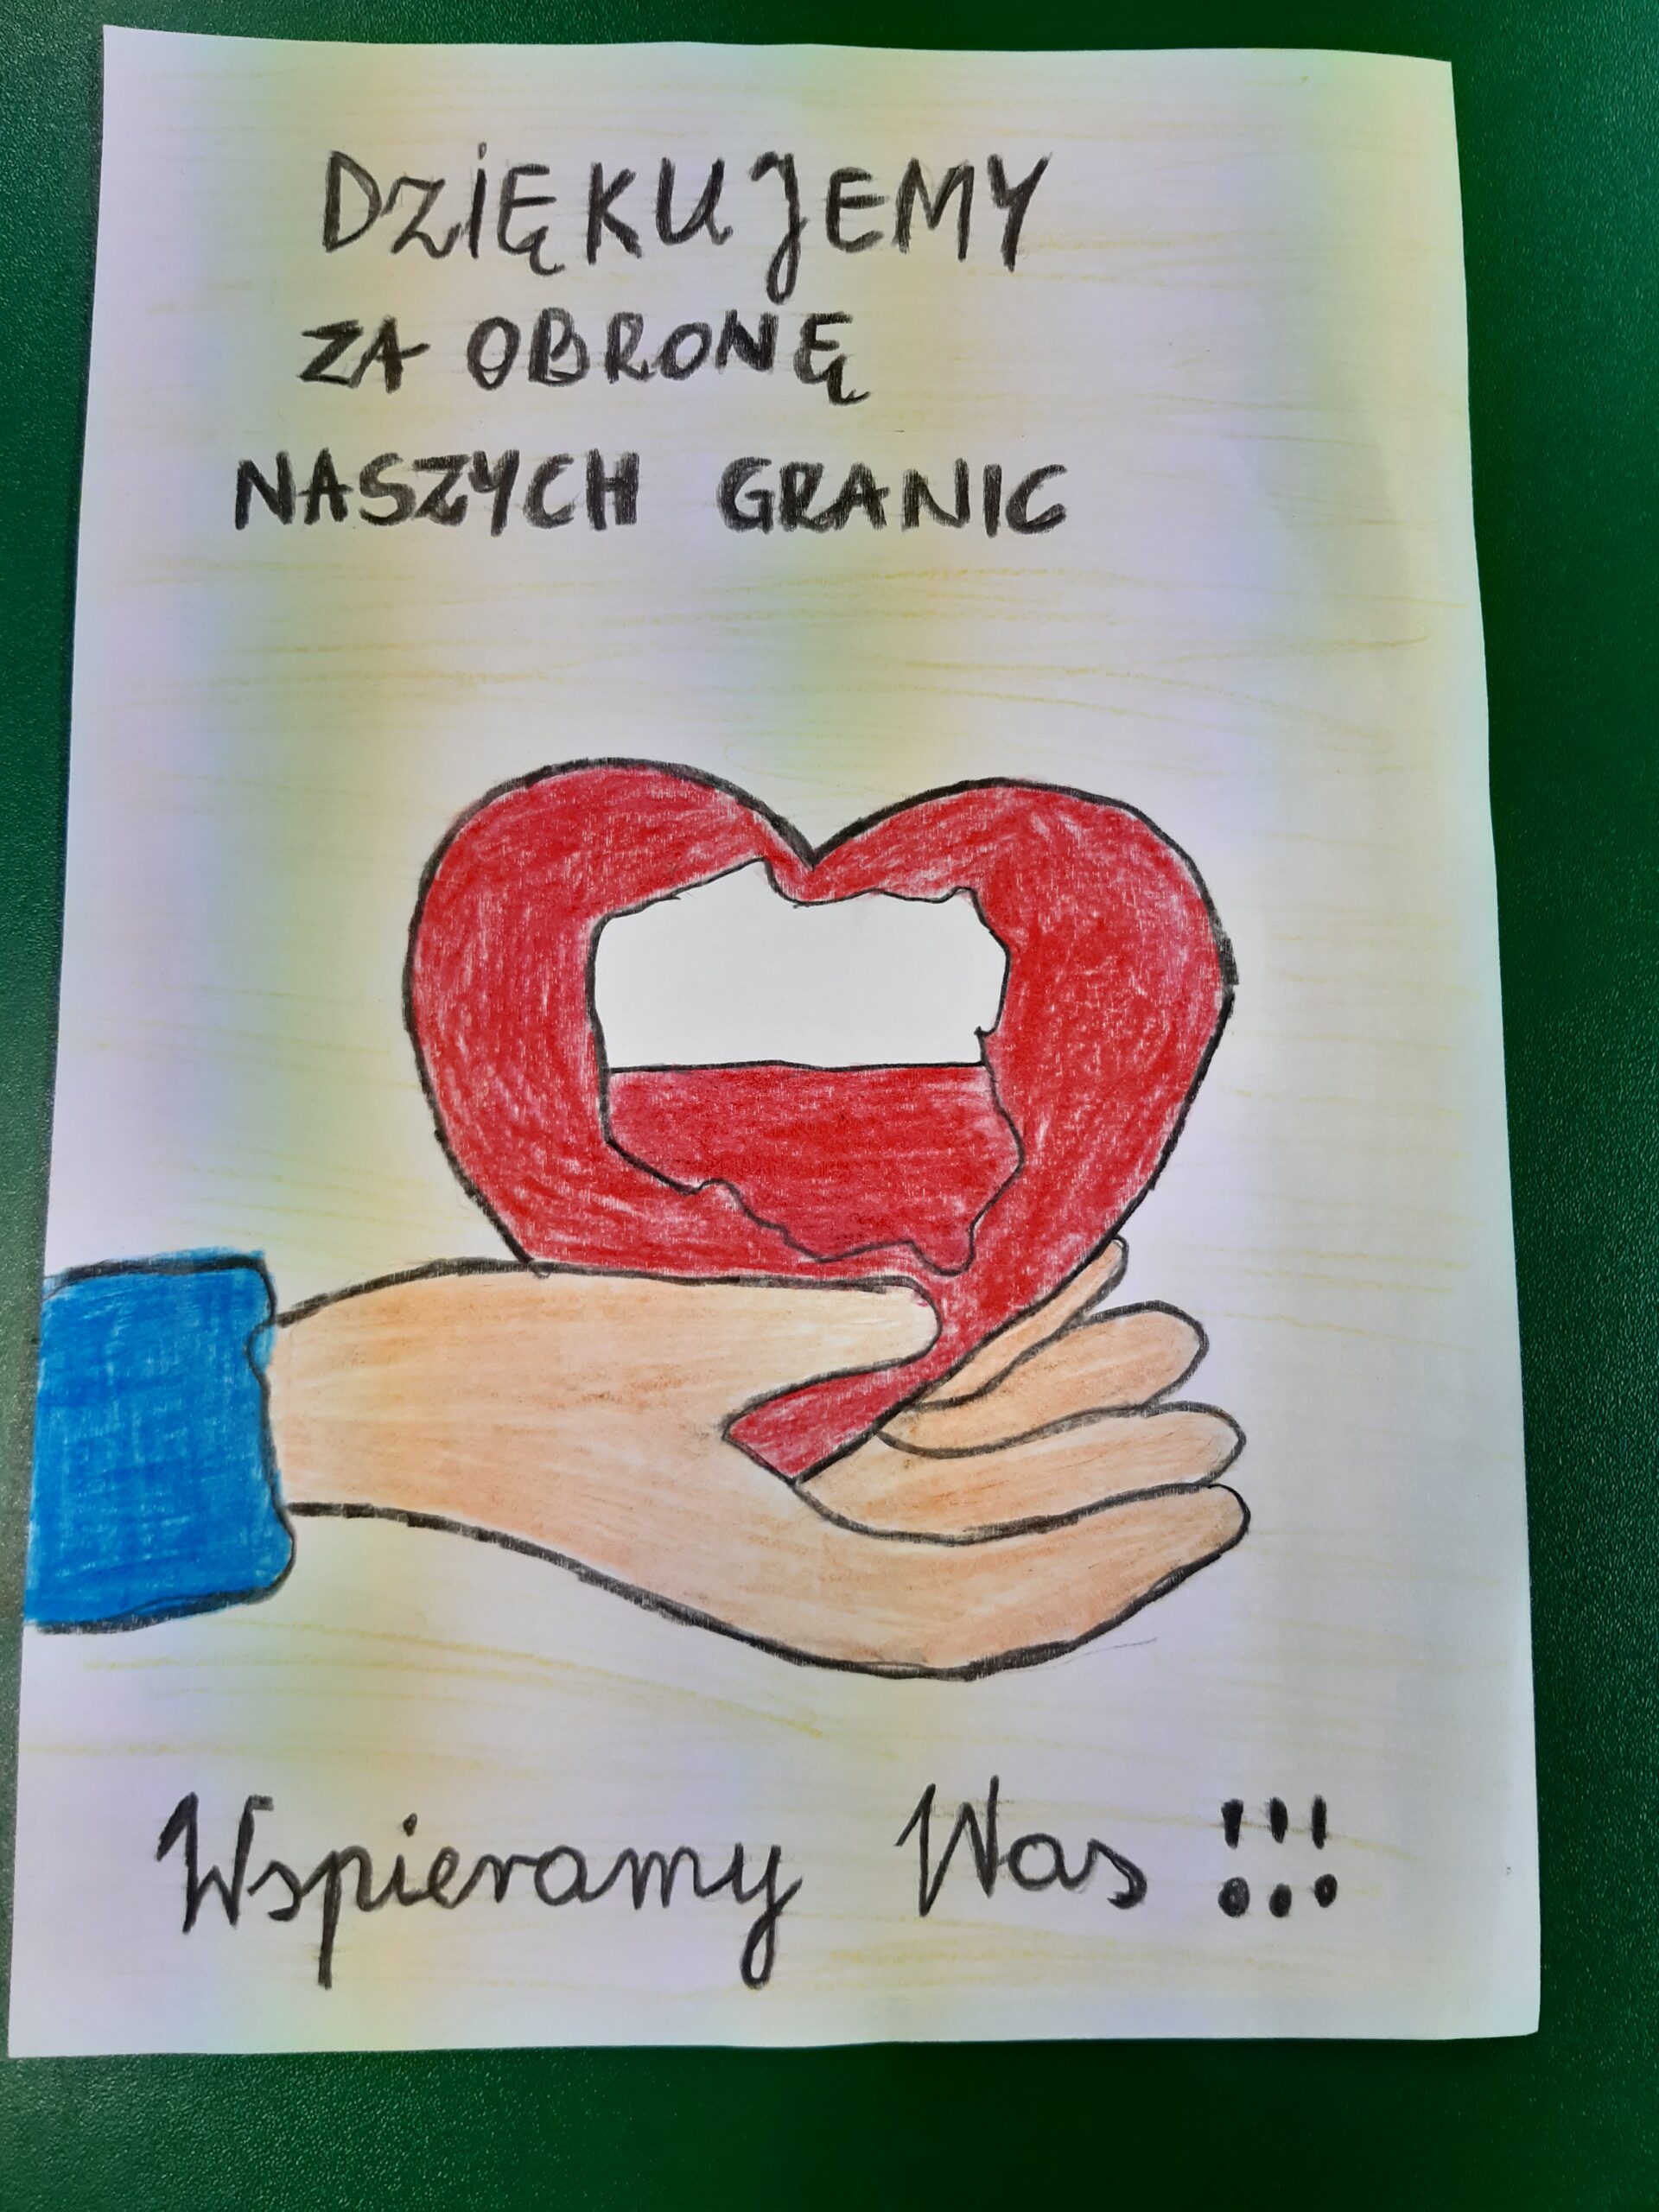 DZIĘKUJEMY
ZA OBRONĘ
NASZYCH GRANIC
Wspieramy Was !!!